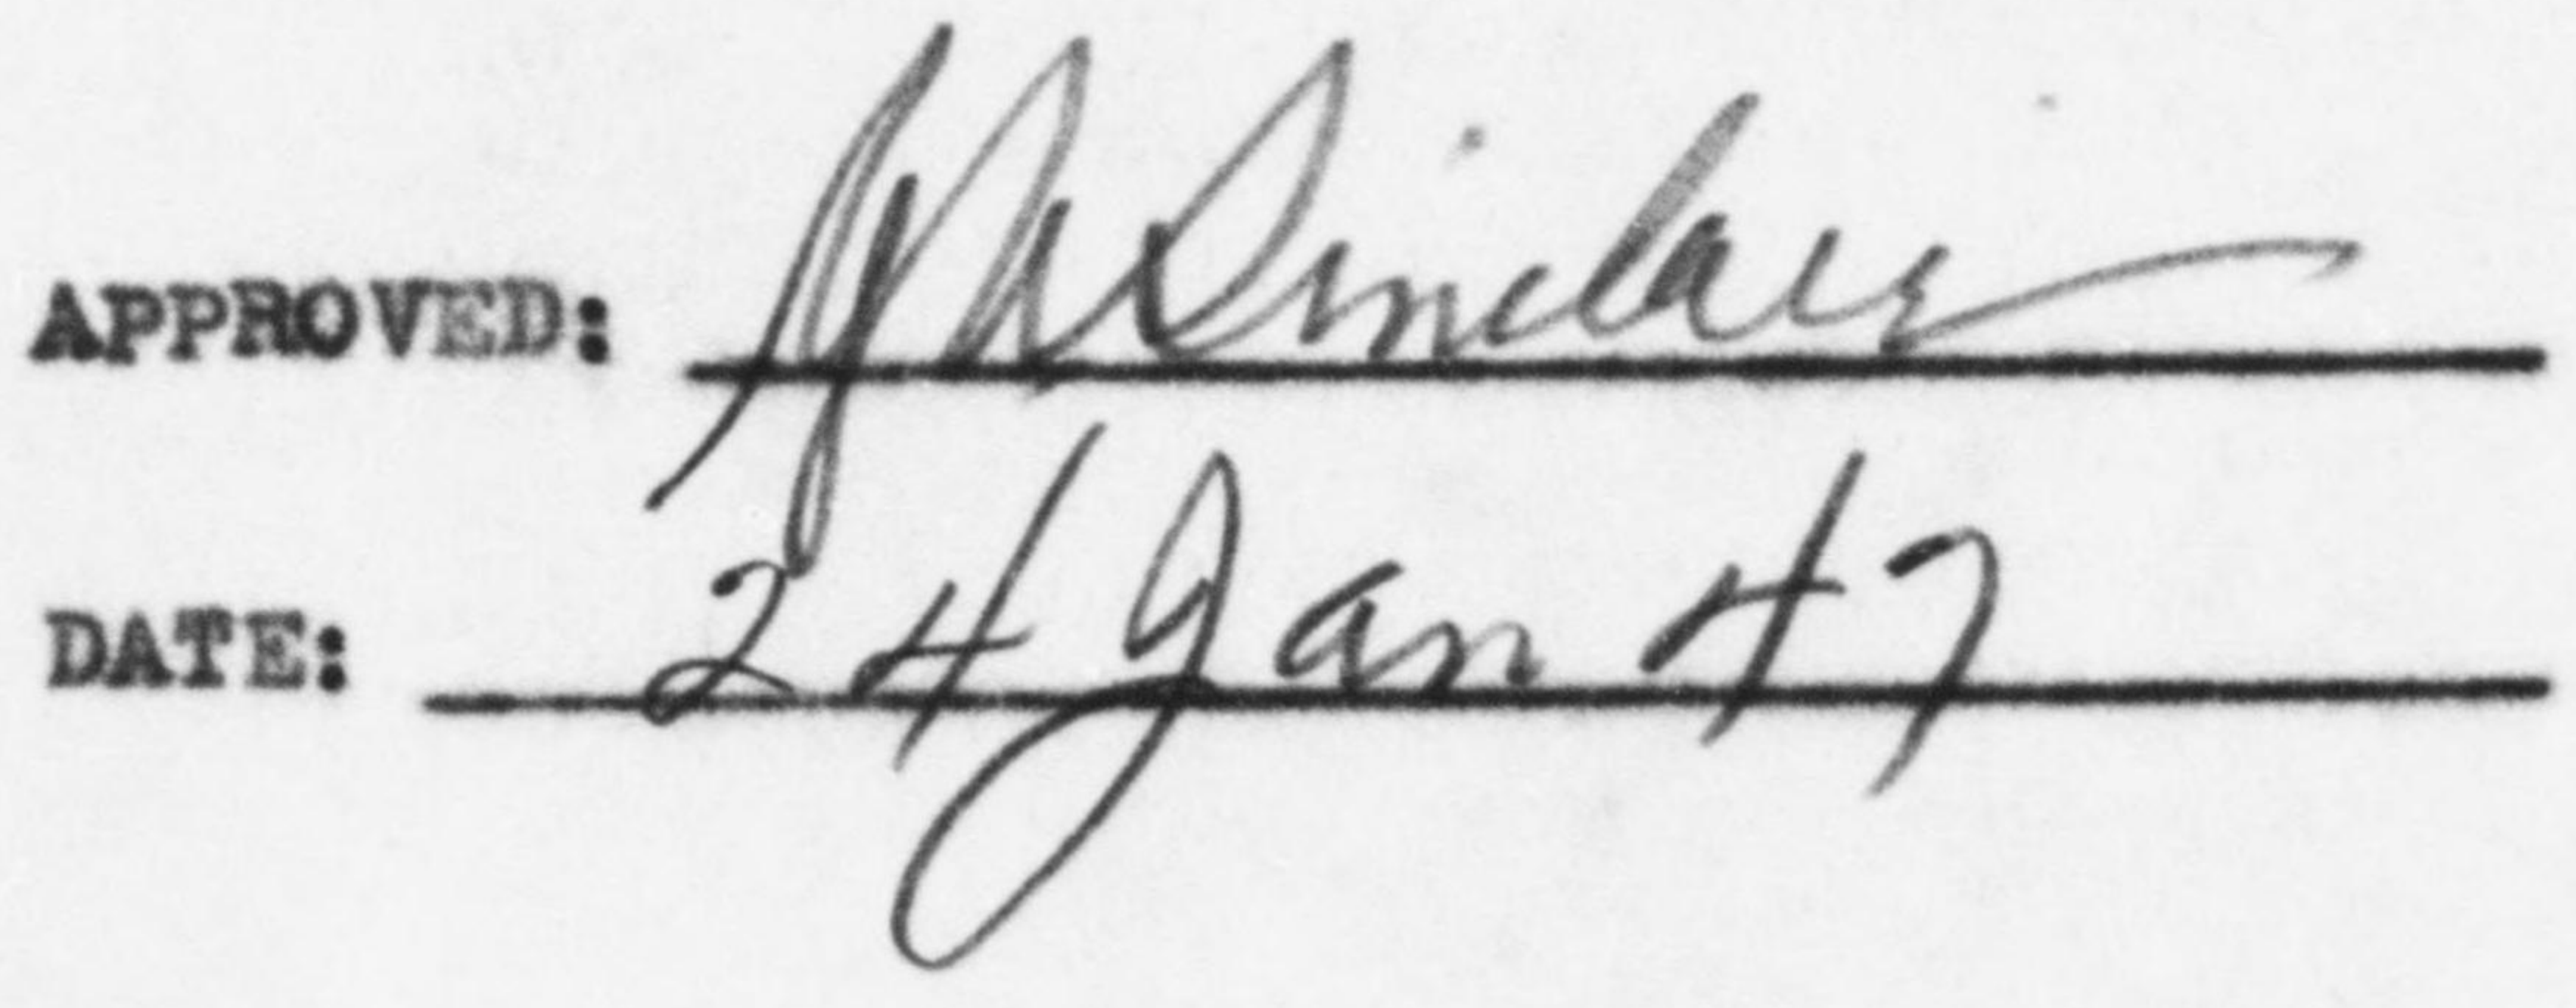 APPROVED: Sinclair
DATE: 24 Jan 47